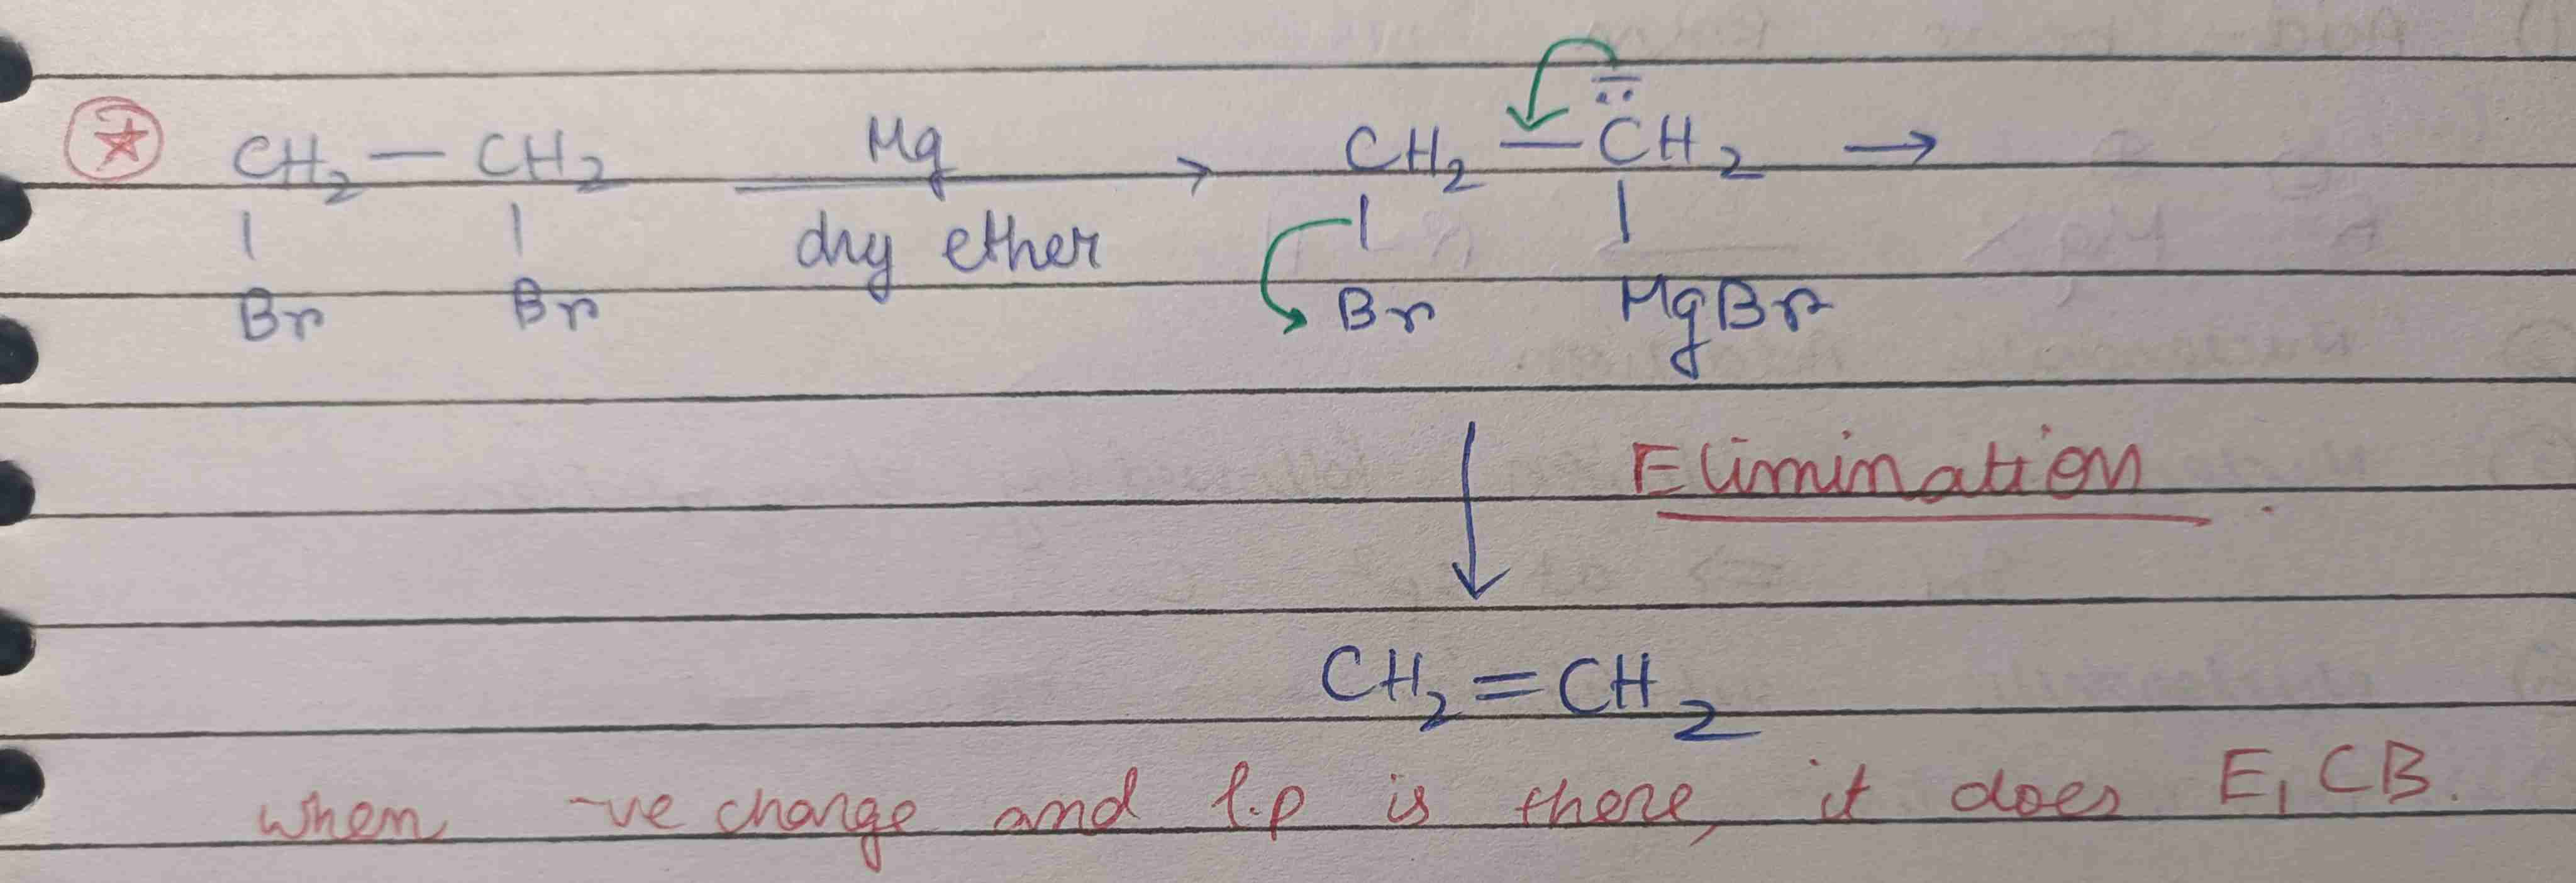 CH₂ — CH₂ Mg CH₂ — C̄̈H₂ →
Br Br dry ether Br MgBr
Elimination.
CH₂=CH₂
when -ve charge and l.p is there, it does E₁CB.